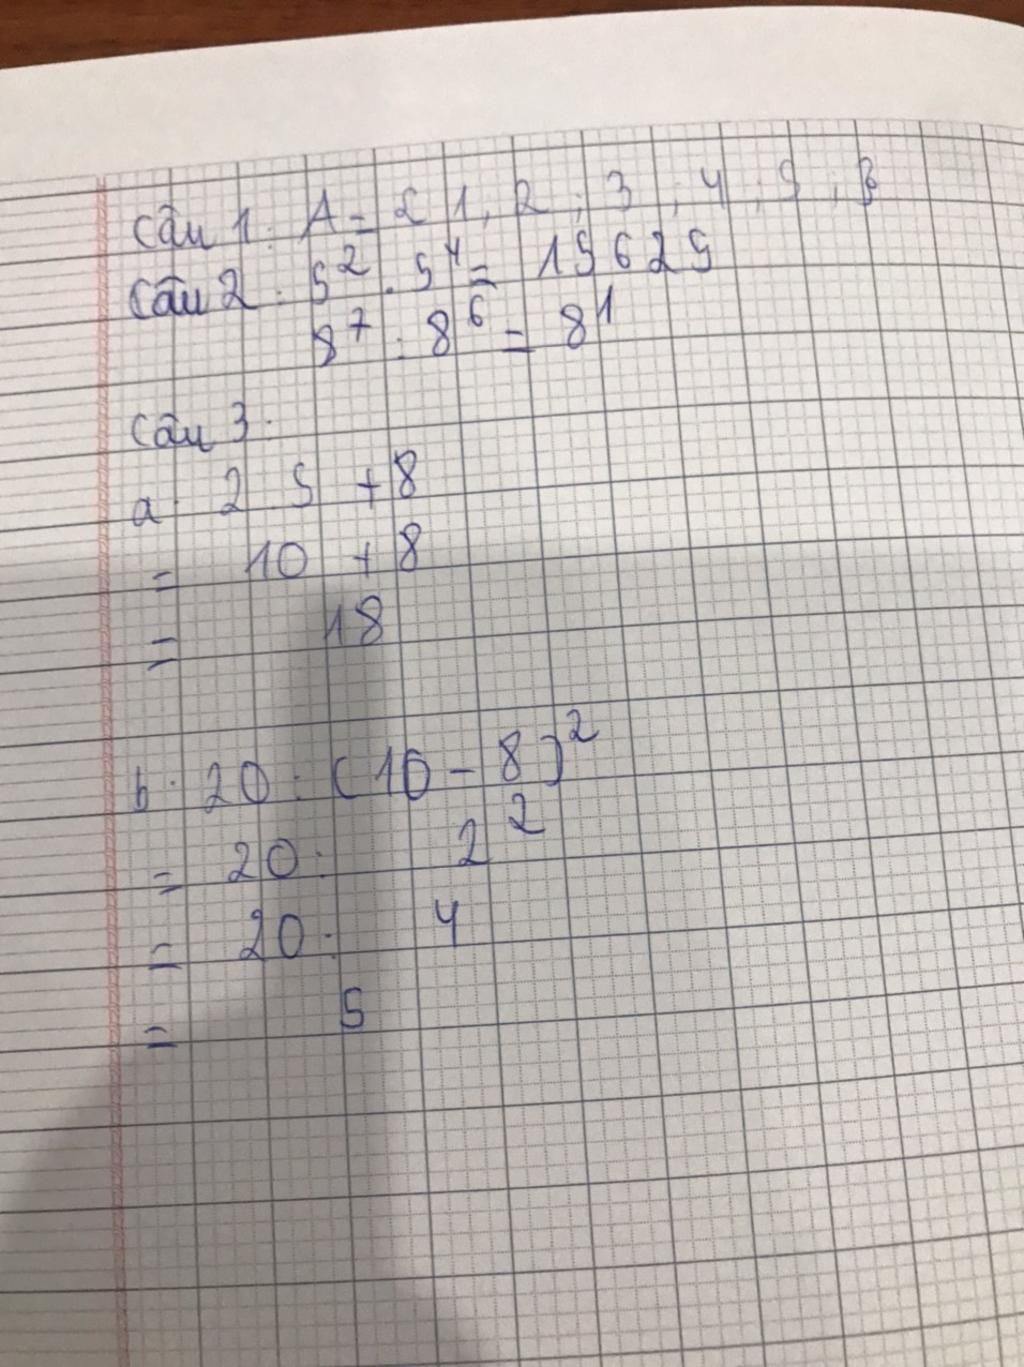 Câu 1: A = { 1, 2 ; 3 ; 4 ; 5 ;
Câu 2 : 5² . 5⁴ = 15625
8⁷ : 8⁶ = 8¹
Câu 3:
a. 2 . 5 + 8
= 10 + 8
= 18
b. 20 : (10 - 8)²
= 20 : 2²
= 20 : 4
= 5